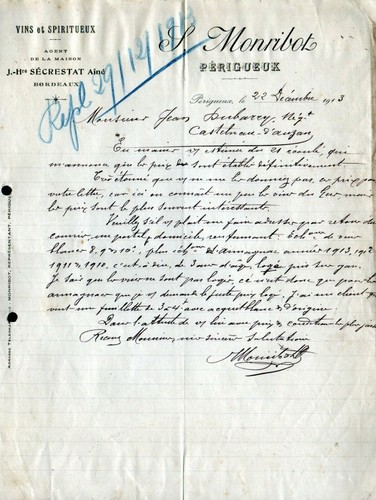 VINS et SPIRITUEUX
AGENT
DE LA MAISON
J.-Hri SÉCRESTAT Aîné
BORDEAUX
S. Monribot
PÉRIGUEUX
Repl 29/12/1913
Périgueux, le 22 Décembre 1913
Monsieur Jean Dubarry, Négt
Castelnau d'auzan
En mains v/ estimée du 21 court, qui
m'annonce que les prix sont établis définitivement
Très étonné que v/ ne me le donniez pas, ce prix, par
votre lettre, car ici on connaît un peu le cours du Gers mais
le prix sont le plus souvent
Veuillez s'il v/ plaît me faire adresser par retour du
courrier, un postal domicile renfermant Echons de vin
blanc 8, 9 et 10°. plus échons d'armagnac année 1913, 1912
1911 & 1910. c'est à dire de 3 ans d'âge logé pris sur gare
Je sais que le vin ne sont pas logé, ce n'est donc que pour les
armagnac que je v/ demande le fût logé. j'ai un client qui
veut une feuillette de 3 à 4 ans avec acquit blanc d'origine.
Dans l'attitude de v/ lire avec prix & conditions le plus juste
Recevez Monsieur, mes sincères Salutations
SMonribot
MONRIBOT, REPRÉSENTANT, PÉRIGUEUX